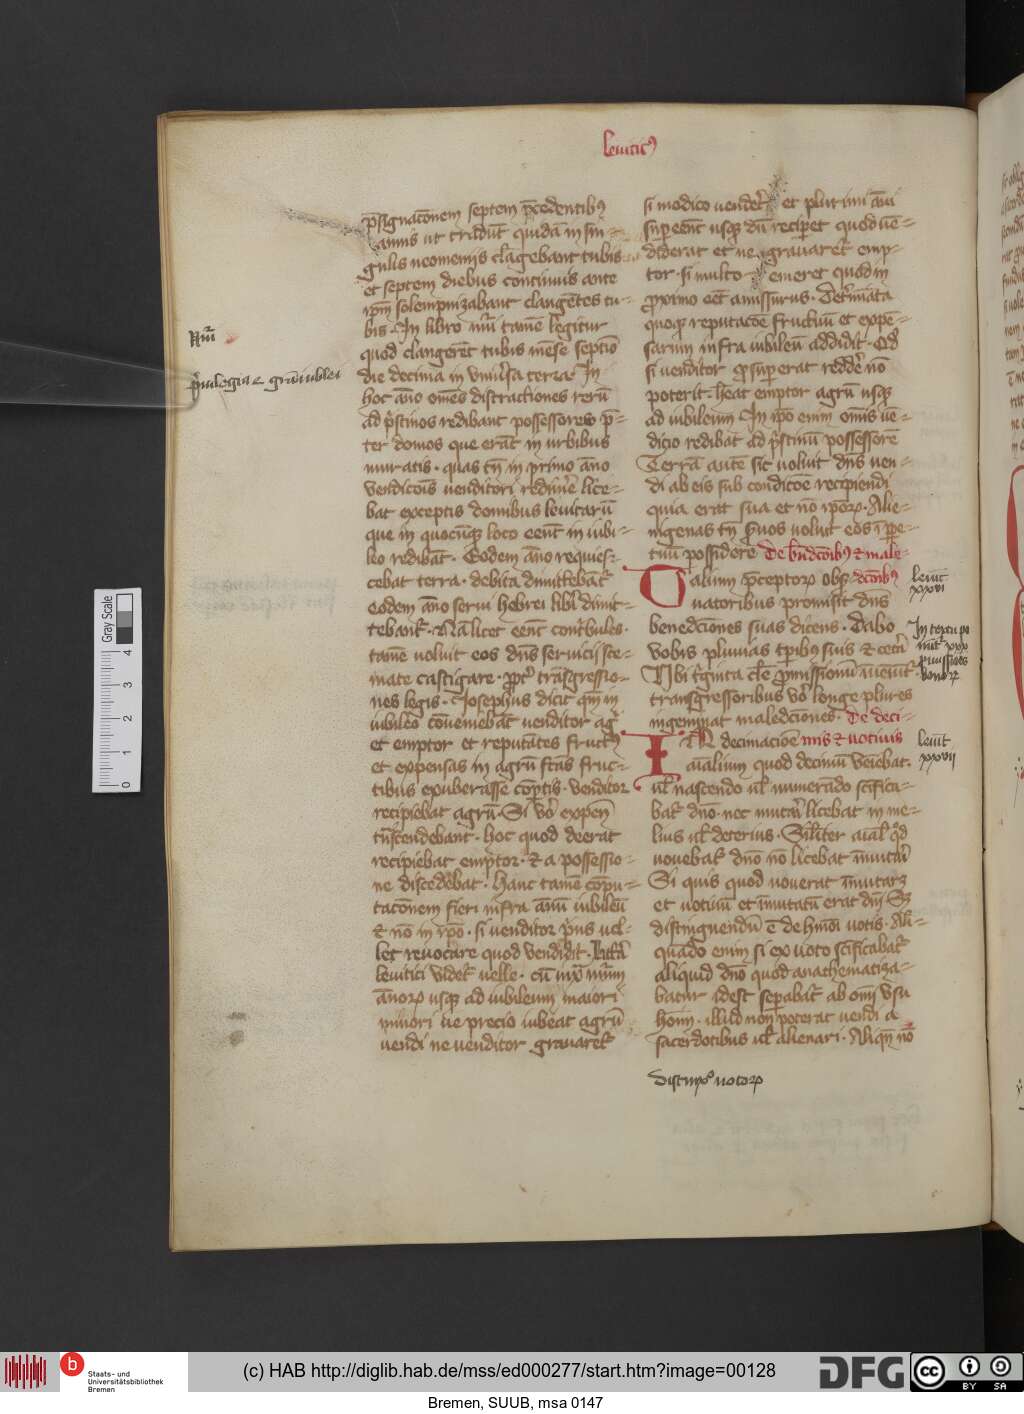 leuitic⁹
p̄signac̄onem septem p̄cedentib⁹
annis ut tradūt quidā in sin-
gulis neomenijs clāgebant tubis
et septem diebus continuis ante
ip̄m solempnizabant clangētes tu-
bis. In libro nūi tamē legitur
quod clangerēt tubis mēse septīo
die decima in vniūsa terra. In
hoc āno om̄es distractiones rerū
ad p̄stinos redibant possessores p̄-
ter domos que erāt in urbibus
muratis. quas tn̄ in primo āno
vendicōis venditori redimē lice-
bat exceptis domibus leuitarū
que in quocūqȝ loco eēnt in iubi-
leo redibāt. Eodem āno requies-
cebat terra. debita dimittebāt᷑
eodem āno serui hebrei lib̄i dimit-
tebant᷑. Nā licet eēnt cont᷑bules.
tamē uoluit eos dn̄s seruicij ste-
mate castigare. pp̄t᷑ trāsgressio-
nes legis. Josephus dicit qm̄ in
iubileo cōueniebāt venditor ag᷑
et emptor et reputātes fruct⁹
et expensas in agrū fc̄as fruc-
tibus exuberasse cōptis. venditor
recipiebat agrū. Si vō expen̄
tn̄scendebant. hoc quod deerat
recipiebat emptor. & a possessio-
ne discedebat. hanc tamē cōpu-
tacōnem fieri infra ānū iubileū
& nō in ip̄o. si venditor p̄us vel-
let reuocare quod vendidit. Litt̄a
leuitici videt᷑ uelle. cū iux̄ nūm
ānoꝝ usqȝ ad iubileum maiori
minori ue precio iubeat agrū
vendi ne venditor grauaret᷑
si modico uenderet et plurimi āni
sup̄eēnt usqȝ dū reciperet quod uē-
diderat et ne grauaret᷑ emp-
tor. si multo emeret quod in
proximo eēt amissurus. Det᷑mīata
quoqȝ reputacōe fructuū et expē-
sarum infra iubileū addidit. Qd̄
si venditor p̄sup̄erat reddē nō
poterit. heāt emptor agrū usqȝ
ad iubileum. In ip̄o enim om̄is uē-
dicio redibat ad p̄stinū possessorē
Terrā autē sic uoluit dn̄s uen-
di ab eis sub condicōe recipiendi
quia erat sua et nō ip̄oꝝ. Alie-
nigenas tn̄ s̄uos uoluit eos ī p̄pe-
tuū possidere De bn̄dcōib⁹ & male-
Talium p̄ceptoꝝ obs- dcōnib⁹
uatoribus promisit dn̄s
benedcōnes suas dicens. Dabo
vobis pluuias tp̄ib⁹ suis & cet̄a
Vbi t᷑ginta cl̄e promissionū inueniūt᷑.
transgressoribus vō longe plures
ingeminat maledcōnes. De deci-
IN decimacōe mis & uotiuis
aīalium quod decimū veīebat.
ul̄ nascendo ul̄ numerādo sc̄ifica-
bat᷑ dn̄o. nec mutari licebat in me-
lius ul̄ deterius. Siliter aīal qd̄
uouebat᷑ dn̄o nō licebat īmutari
Si quis quod uouerat īmutaret
et uotiuū et īmutatū erat dn̄i Sȝ
distinguendū ē de hmōi uotis. Ali-
quādo enim si ex uoto sc̄ificabat᷑
aliquid dn̄o quod anathematiza-
batur idest sepabat᷑ ab om̄i vsu
hom̄. illud non poterat vendi a
sacerdotibus ul̄ alienari. Aliqn̄ nō
Nūi
p̄uilegia & grām iublei
leuit᷑
xxvi
In textu po
nūt᷑ xxx
p̄missiōes
bonoꝝ
leuit᷑
xxvii
Distinxō uotoꝝ
Gray Scale
0 1 2 3 4
b Staats- und
Universitätsbibliothek
Bremen
(c) HAB http://diglib.hab.de/mss/ed000277/start.htm?image=00128
DFG
cc BY SA
Bremen, SUUB, msa 0147